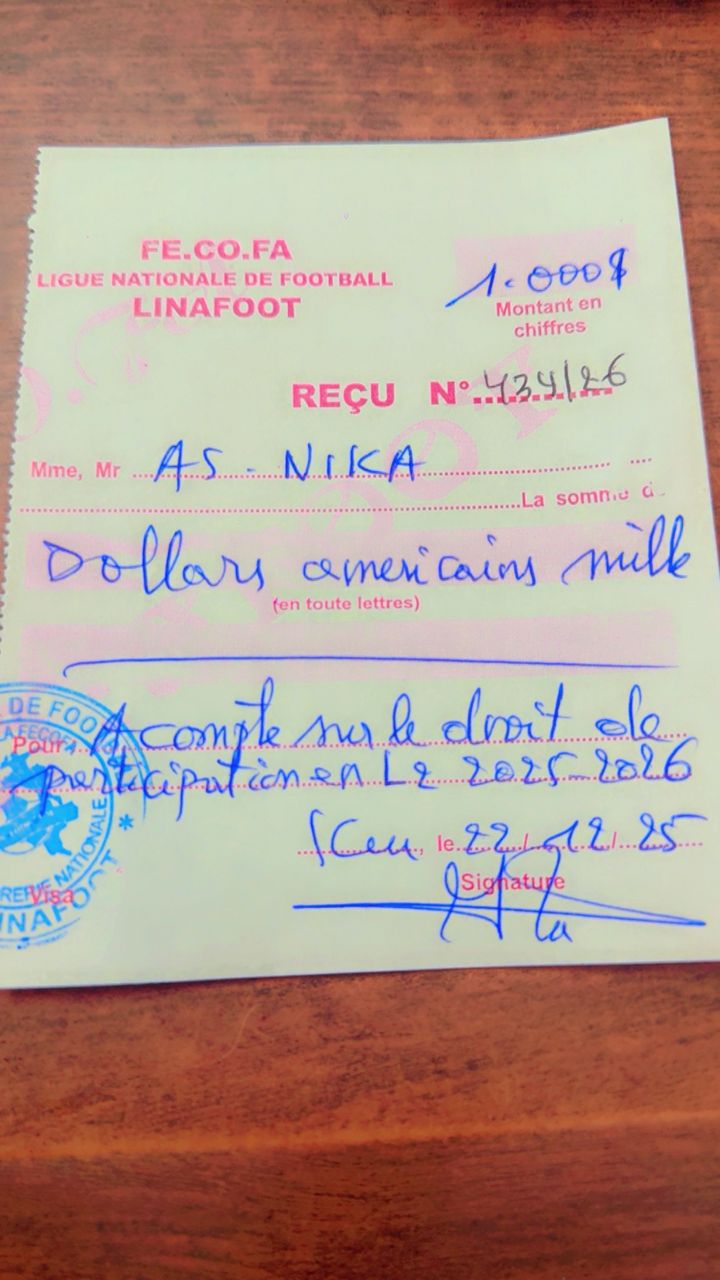 FE.CO.FA
LIGUE NATIONALE DE FOOTBALL
LINAFOOT
1.000$
Montant en
chiffres
REÇU N° 434/26
Mme, Mr AS - NIKA
La somme d
Dollars americains mille
(en toute lettres)
Pour Acompte sur le droit de
participation en L2 2025-2026
le 22/12/25
Signature
Visa
DE FOO
LA FECOFA
NATIONALE
LINAFOOT